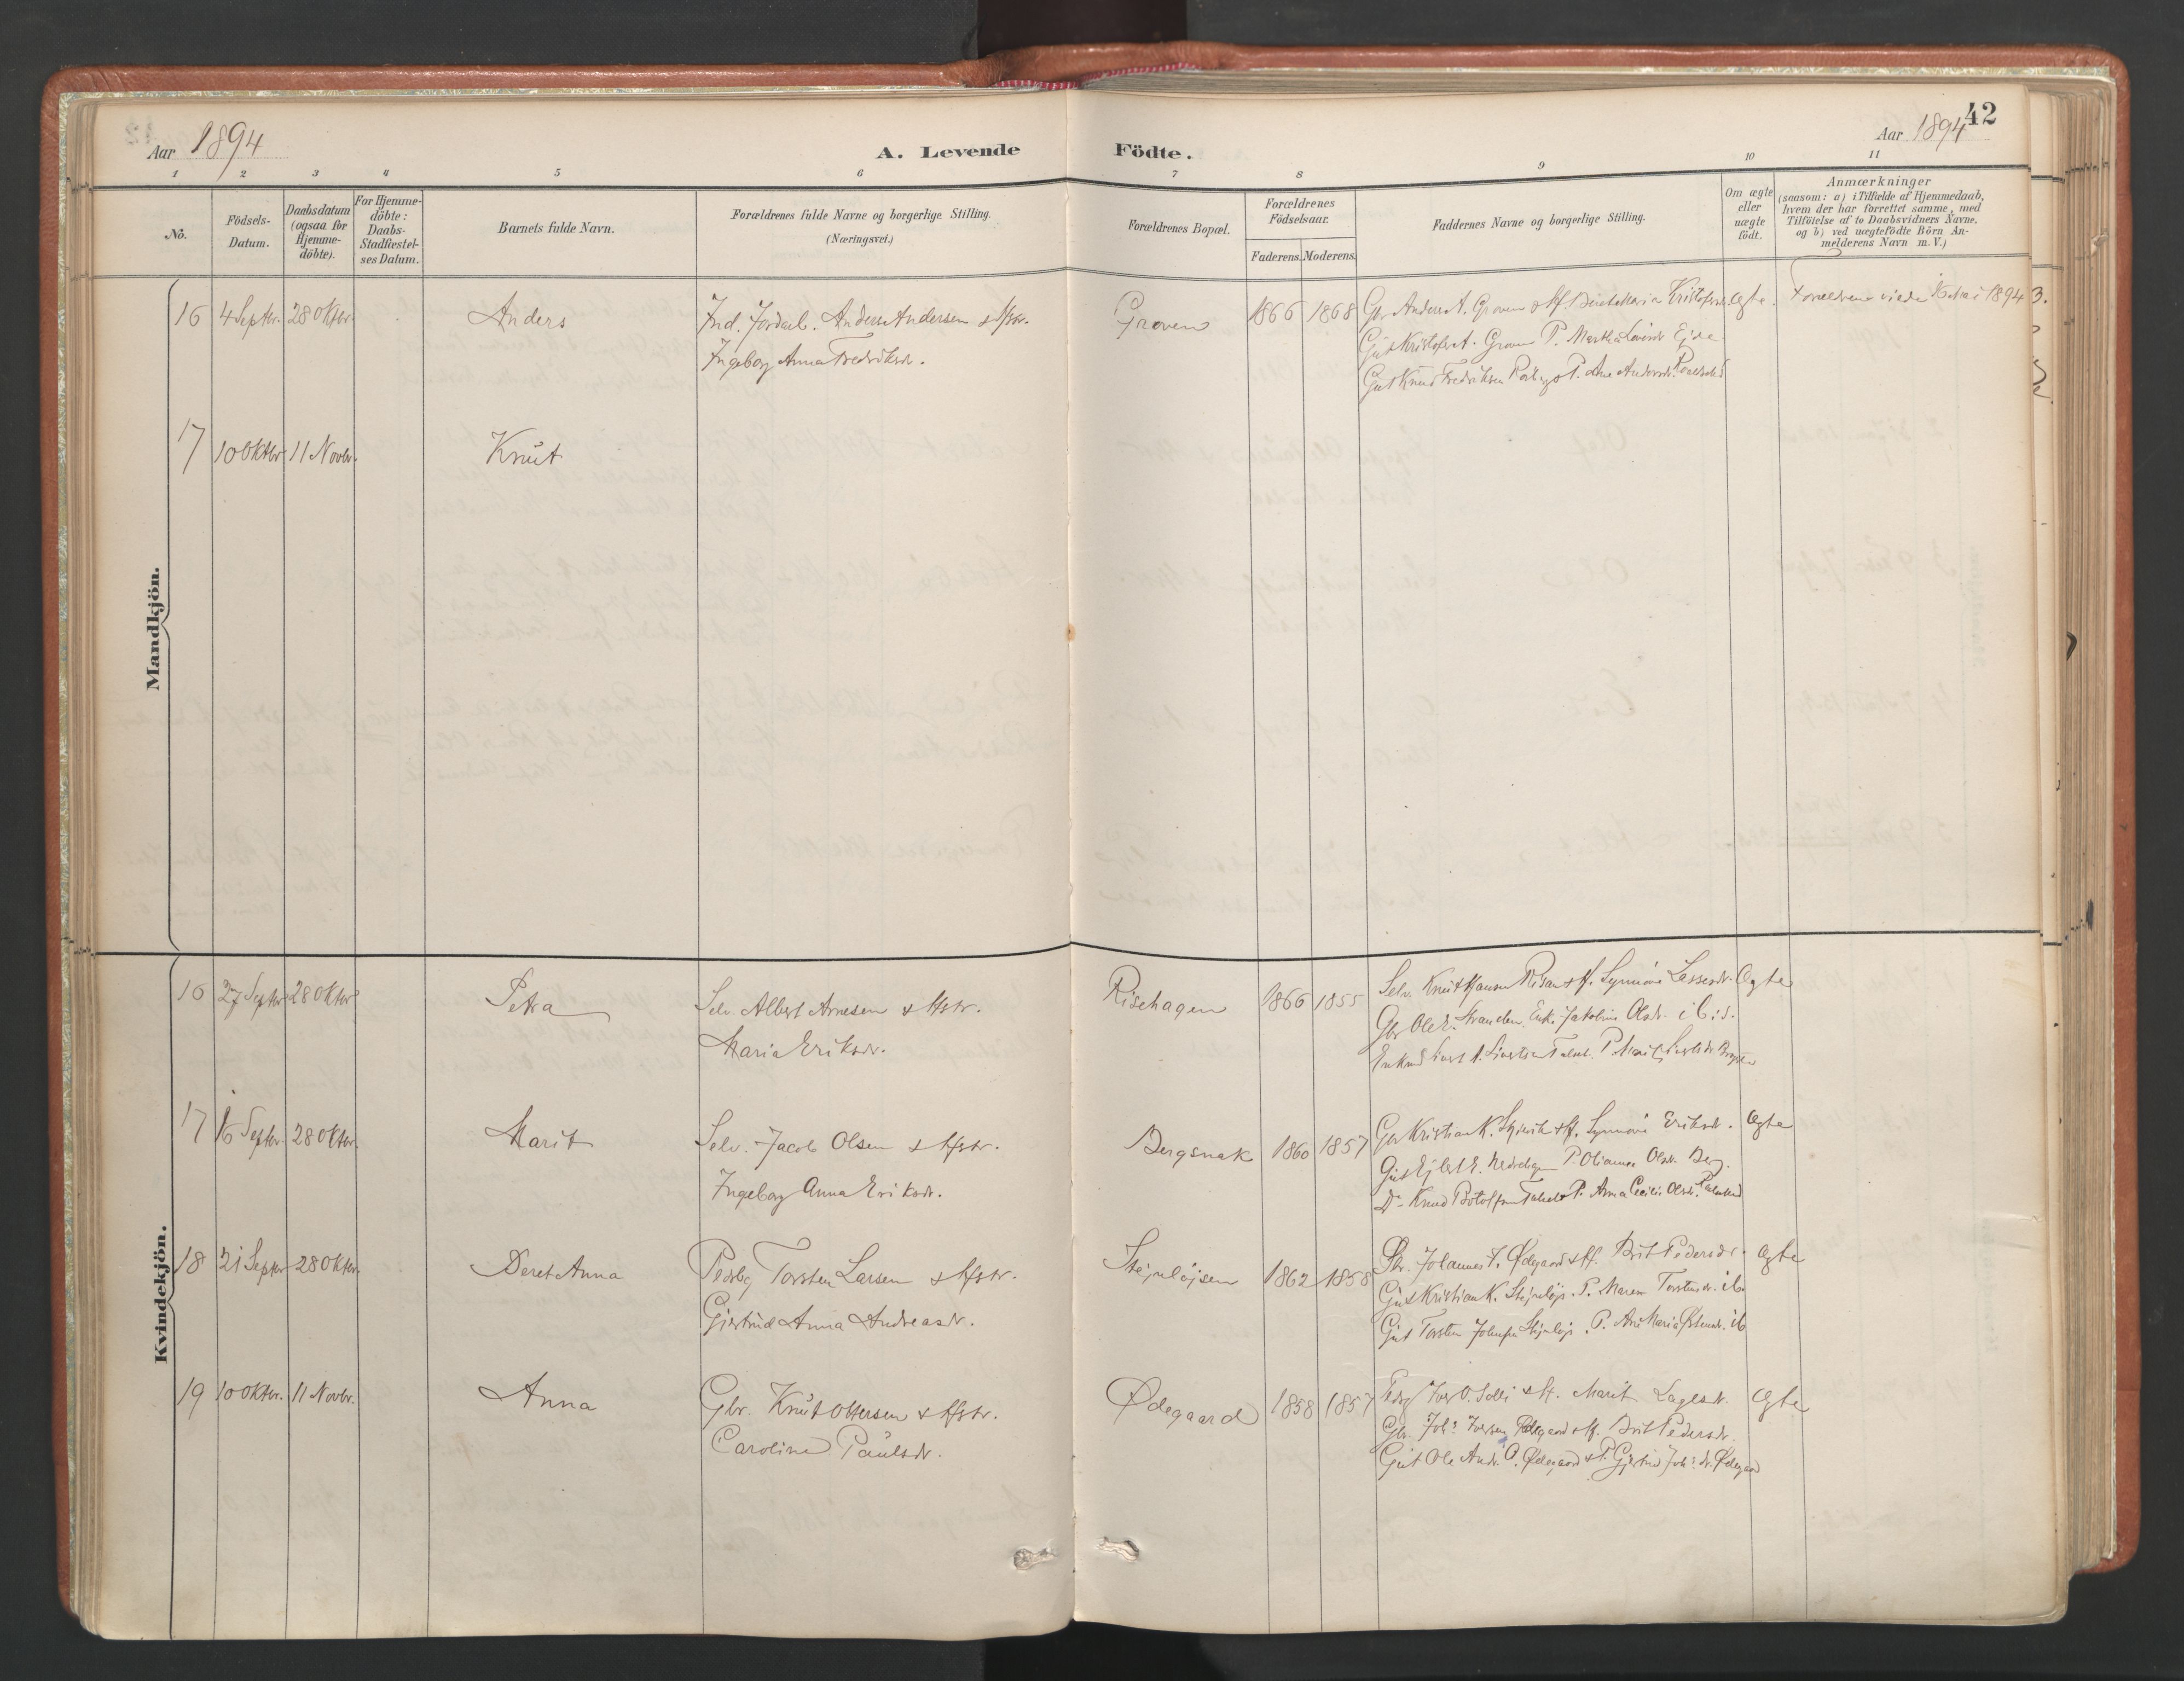 Aar 1894
A. Levende
Födte.
Aar 1894
42
1 2 3 4 5 6 7 8 9 10 11
No.
Födsels-
Datum.
Daabsdatum
(ogsaa for
Hjemme-
döbte).
For Hjemme-
döbte:
Daabs-
Stadfæstel-
ses Datum.
Barnets fulde Navn.
Forældrenes fulde Navne og borgerlige Stilling.
(Næringsvei.)
Forældrenes Bopæl.
Forældrenes
Födselsaar.
Faderens. Moderens.
Faddernes Navne og borgerlige Stilling.
Om ægte
eller
uægte
födt.
Anmærkninger
(saasom: a) i Tilfælde af Hjemmedaab,
hvem der har forrettet samme, med
Tilföielse af to Daabsvidners Navne.
og b) ved uægtefödte Börn An-
melderens Navn m. V.)
Mandkjön.
16 4 Septbr. 28 Oktbr. Anders
Ind. Jordarb. Anders Andersen & Hstr.
Ingeborg Anna Fredriksdr.
Groven 1866 1868
Gbr Anders A. Groven & Hf. Maria Kristofersdr.
Gut Kristofer A. Groven P. Martha Eide
Gut Knud Fredriksen P. Ane Andersdr.
ægte. Forældrene viede 16 Mai 1894
17 10 Oktbr 11 Novbr. Knut
Kvindekjön.
16 27 Septbr 28 Oktbr Petra
Selv. Albert Arnesen & Hstr.
Maria Eriksdr.
Risehagen 1866 1855
Selv. Knut Hansen Risan & Hf. Synnöve Lassesdr.
Gbr Ole E. Stranden, Enke Jakobine Olsdr. ibid.
Enkem. Sivert A. Sivertsen P. Marit
Ægte
17 16 Septbr. 28 Oktbr. Marit
Selv. Jacob Olsen & Hstr.
Ingeborg Anna Eriksdr.
Bergsnak 1860 1857
Gbr Kristian K. & Hf. Synnöve Eriksdr.
Gut Ejlert E. P. Olianna Olsdr. Berg.
Do Knud Botolfsen P. Anna Cecilie Olsdr.
Ægte
18 21 Septbr 28 Oktbr. Beret Anna
Pladsbg Torsten Larsen & Hstr.
Gjertrud Anna Andreasdr.
Stejnløjsen 1862 1858
Gbr. Johannes T. Ødegaard & Hf. Brit Pedersdr.
Gut Kristian K. Stejnløjs. P. Maren Torstensdr. ib.
Gut Torsten Johnsen Stejnløjs. P. Ane Maria Østensdr. ib
Ægte
19 10 Oktbr. 11 Novbr. Anna
Gbr. Knut Ottersen & Hstr.
Caroline Paulsdr.
Ødegaard 1858 1857
Pladsbg Iver O. Solli & Hf. Marit Lagesdr.
Gbr. Johs Iversen Ødegaard & Hf. Brit Pedersdr.
Gut Ole Andr. O. Ødegaard & P. Gjertrud Johs dr. Ødegaard
Ægte